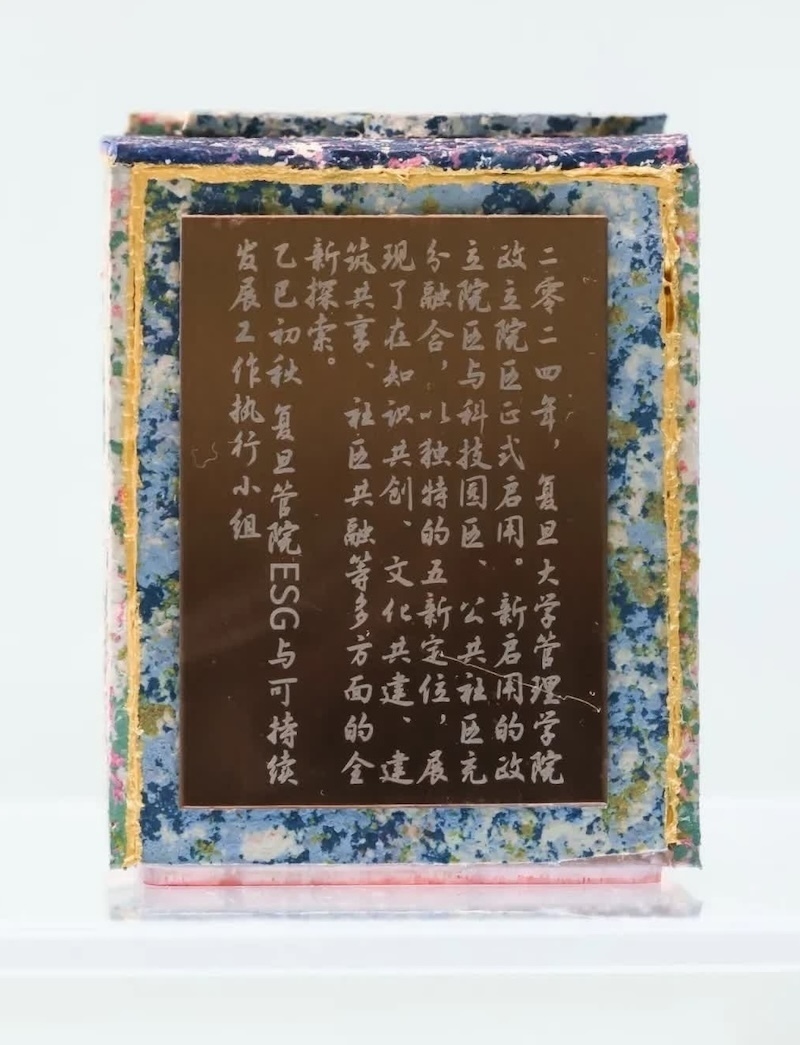 二零二四年，复旦大学管理学院
政立院区正式启用。新启用的政
立院区与科技园区、公共社区充
分融合，以独特的五新定位，展
现了在知识共创、文化共建、建
筑共享、社区共融等多方面的全
新探索。
乙巳初秋 复旦管院ESG与可持续
发展工作执行小组